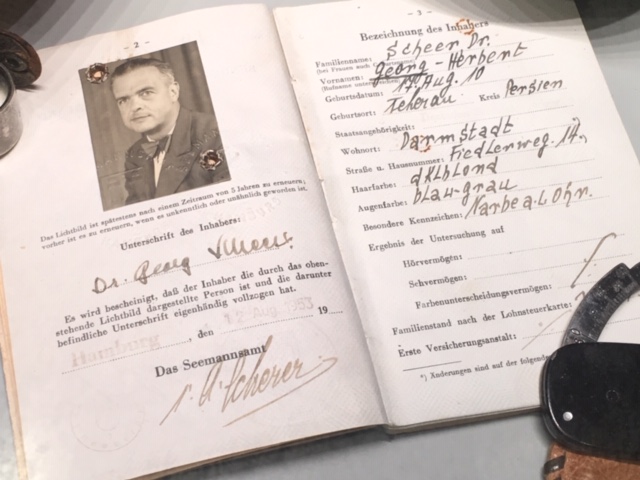 - 2 -
Das Lichtbild ist spätestens nach einem Zeitraum von 5 Jahren zu erneuern;
vorher ist es zu erneuern, wenn es unkenntlich oder unähnlich geworden ist.
Unterschrift des Inhabers:
Dr. Georg Scheer
Es wird bescheinigt, daß der Inhaber die durch das oben-
stehende Lichtbild dargestellte Person ist und die darunter
befindliche Unterschrift eigenhändig vollzogen hat.
Hamburg, den 12. Aug. 1953 19
Das Seemannsamt
Scherer
- 3 -
Bezeichnung des Inhabers
Familienname: Scheer, Dr.
(bei Frauen auch
Vornamen: Georg-Herbert
(Rufname
Geburtsdatum: Aug. 10
Geburtsort: Teheran Kreis Persien
Staatsangehörigkeit:
Wohnort: Darmstadt
Straße u. Hausnummer: Fiedlerweg. 14.
Haarfarbe: dklblond
Augenfarbe: blau-grau
Besondere Kennzeichen: Narbe a. l. Ohr.
Ergebnis der Untersuchung auf
Hörvermögen:
Sehvermögen:
Farbenunterscheidungsvermögen:
Familienstand nach der Lohnsteuerkarte:
Erste Versicherungsanstalt:
*) Änderungen sind auf der folgenden